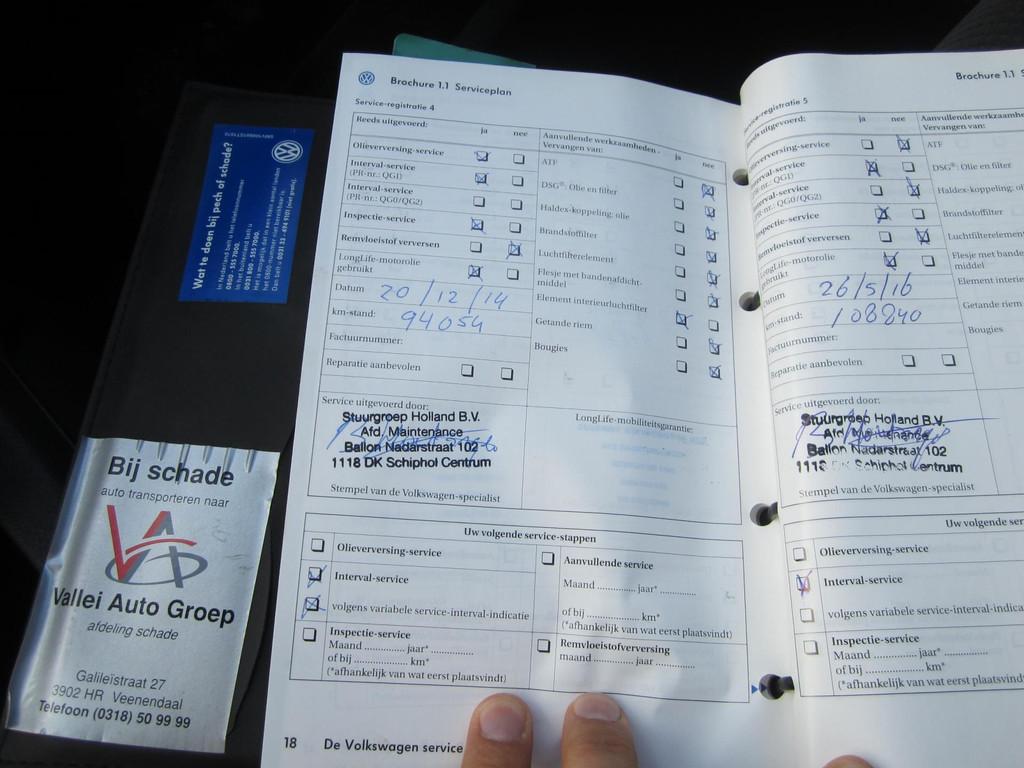 Wat te doen bij pech of schade?
In Nederland belt u het telefoonnummer
0800 - 555 7000.
In het buitenland belt u
Bij schade
auto transporteren naar
VA
Vallei Auto Groep
afdeling schade
Galileïstraat 27
3902 HR Veenendaal
Telefoon (0318) 50 99 99
Brochure 1.1 Serviceplan
Service-registratie 4
Reeds uitgevoerd: ja nee
Olieverversing-service
Interval-service
(PR-nr.: QG1)
Interval-service
(PR-nr.: QG0/QG2)
Inspectie-service
Remvloeistof verversen
LongLife-motorolie
gebruikt
Datum 20/12/14
km-stand: 94054
Factuurnummer:
Reparatie aanbevolen
Aanvullende werkzaamheden -
Vervangen van: ja nee
ATF
DSG®: Olie en filter
Haldex-koppeling: olie
Brandstoffilter
Luchtfilterelement
Flesje met bandenafdicht-
middel
Element interieurluchtfilter
Getande riem
Bougies
Service uitgevoerd door:
Stuurgroep Holland B.V.
Afd. Maintenance
Ballon Nadarstraat 102
1118 DK Schiphol Centrum
Stempel van de Volkswagen-specialist
LongLife-mobiliteitsgarantie:
Uw volgende service-stappen
Olieverversing-service
Interval-service
volgens variabele service-interval-indicatie
Inspectie-service
Maand .............. jaar* ..............
of bij .............. km*
(*afhankelijk van wat eerst plaatsvindt)
Aanvullende service
Maand .............. jaar* ..............
of bij .............. km*
(*afhankelijk van wat eerst plaatsvindt)
Remvloeistofverversing
maand .............. jaar ..............
18 De Volkswagen service
Brochure 1.1 S
Service-registratie 5
Reeds uitgevoerd: ja nee
Olieverversing-service
Interval-service
(PR-nr.: QG1)
Interval-service
(PR-nr.: QG0/QG2)
Inspectie-service
Remvloeistof verversen
LongLife-motorolie
gebruikt
Datum 26/5/16
km-stand: 108840
Factuurnummer:
Reparatie aanbevolen
Aanvullende werkzaamheden
Vervangen van:
ATF
DSG®: Olie en filter
Haldex-koppeling: ol
Brandstoffilter
Luchtfilterelement
Flesje met banden
middel
Element interi
Getande riem
Bougies
Service uitgevoerd door:
Stuurgroep Holland B.V.
Afd. Maintenance
Ballon Nadarstraat 102
1118 DK Schiphol Centrum
Stempel van de Volkswagen-specialist
Uw volgende ser
Olieverversing-service
Interval-service
volgens variabele service-interval-indica
Inspectie-service
Maand .............. jaar* ..............
of bij .............. km*
(*afhankelijk van wat eerst plaatsvindt